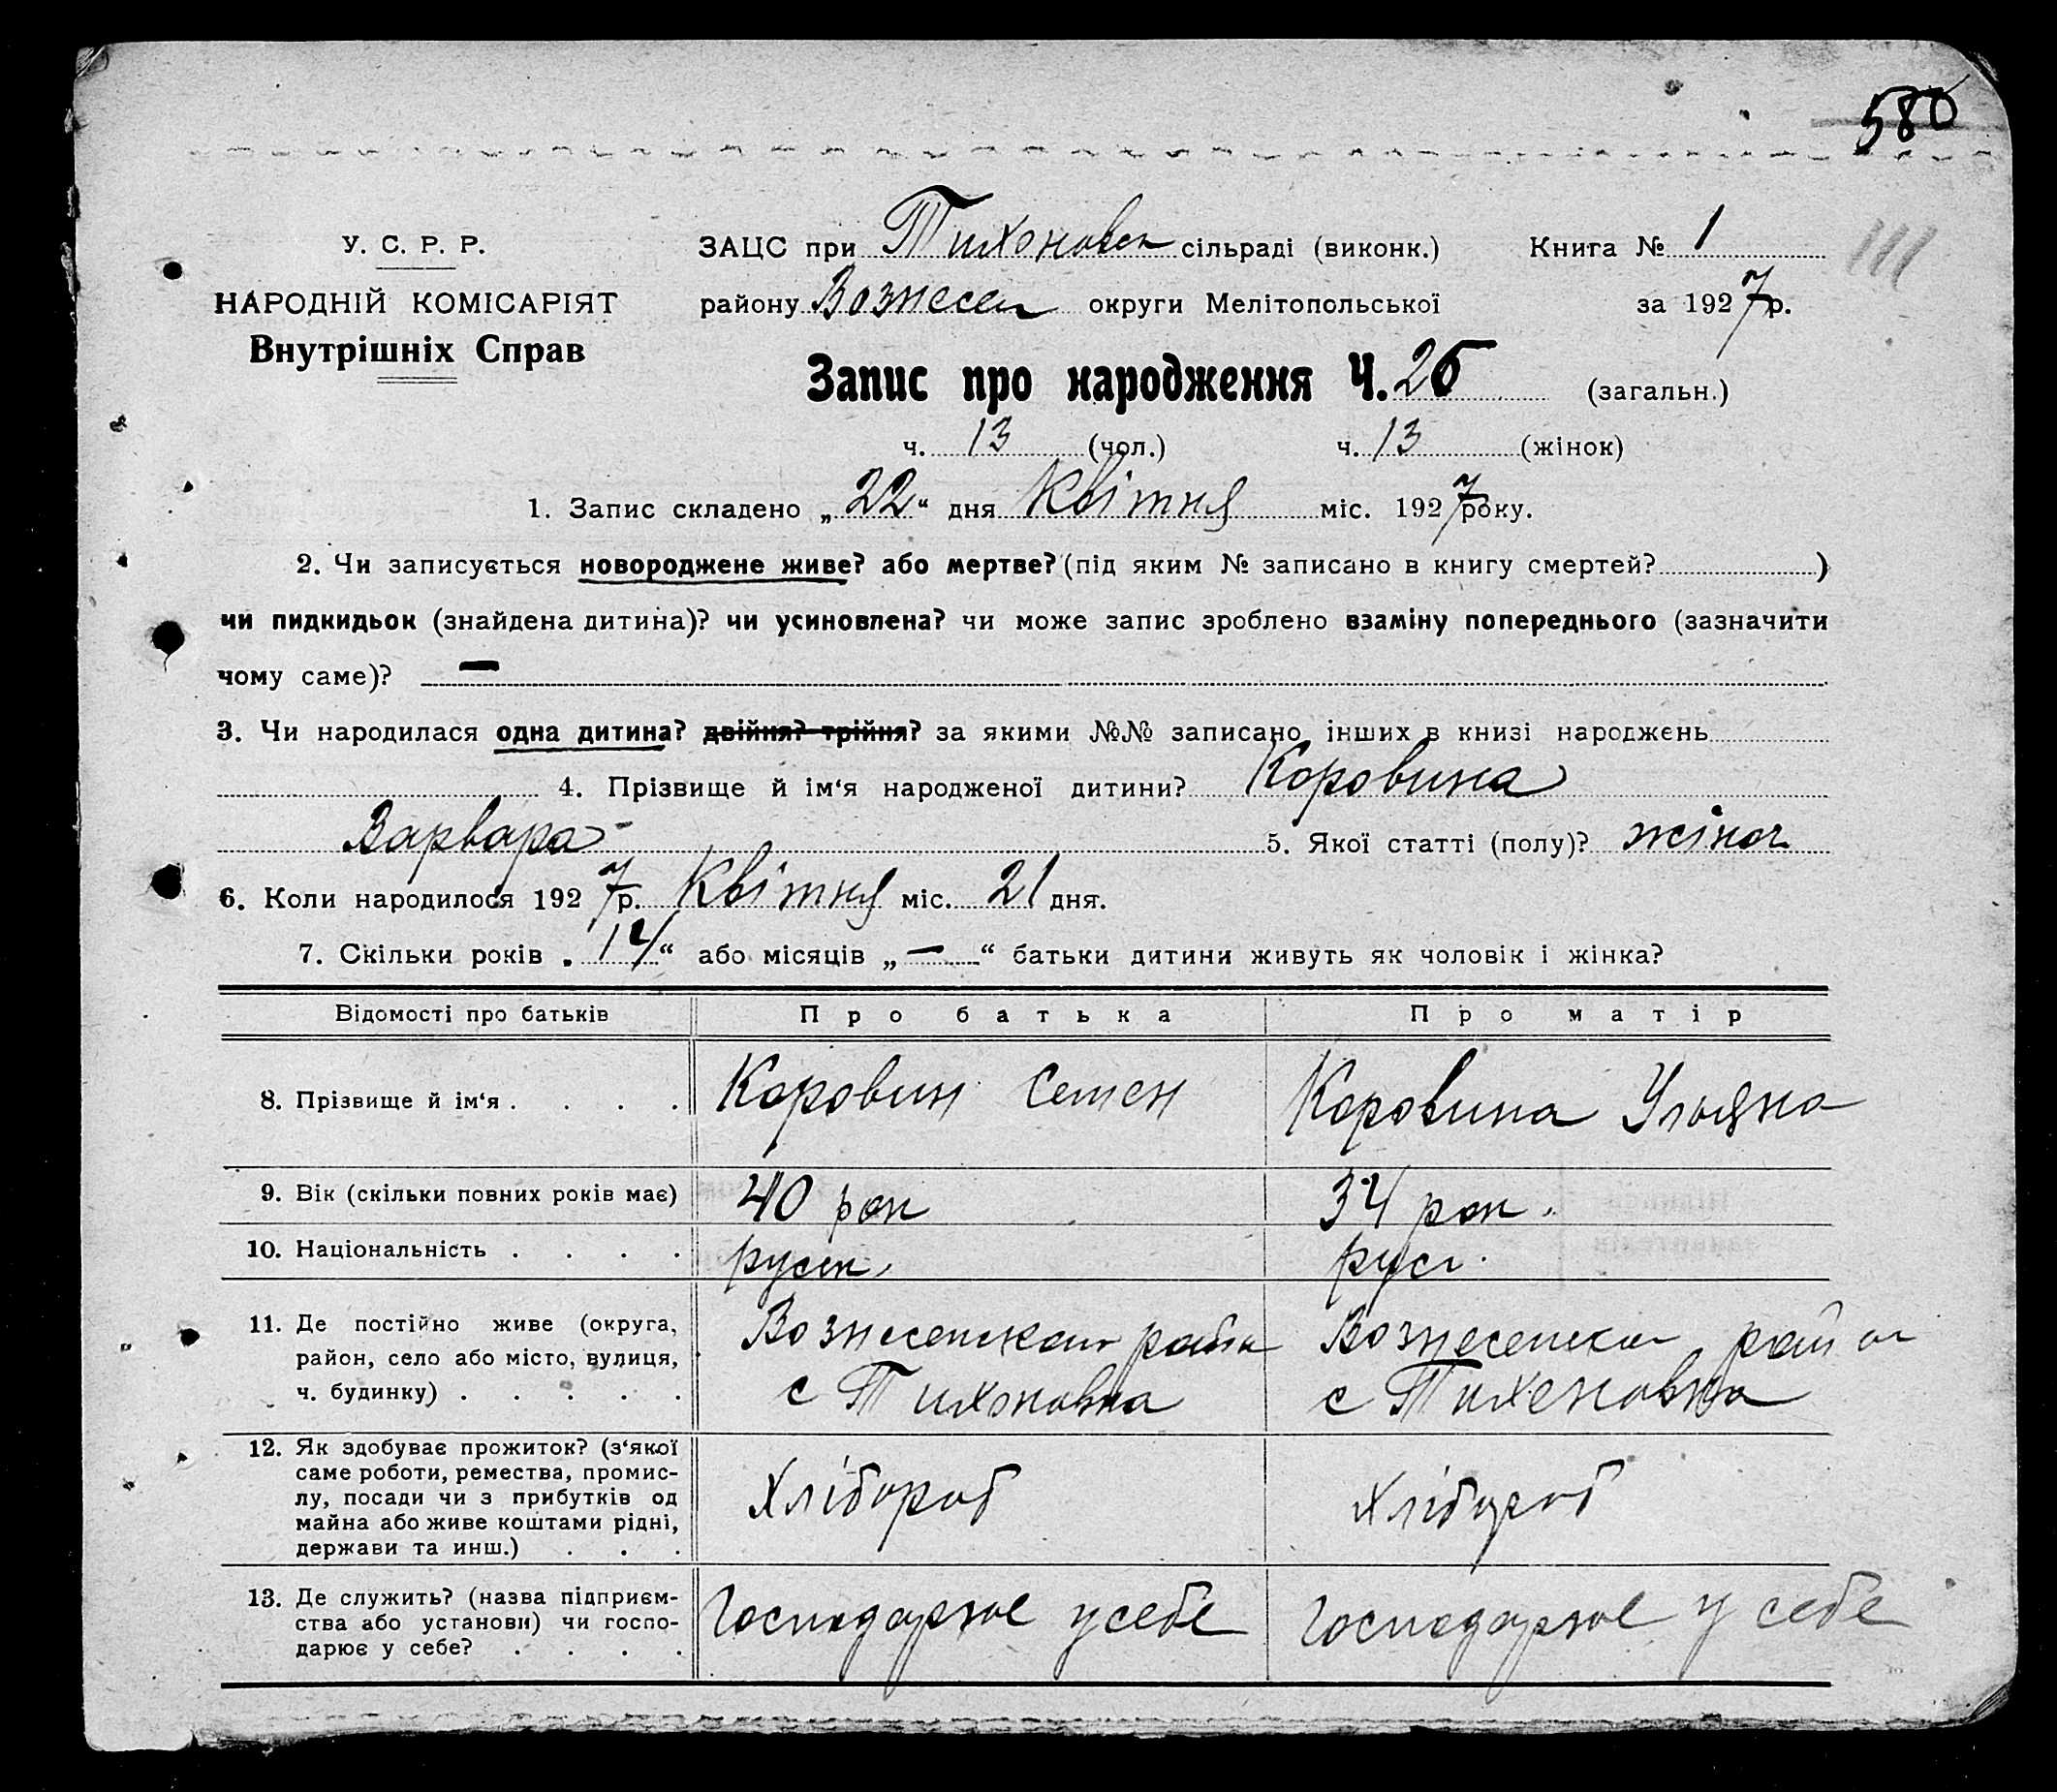 580
У. С. Р. Р.
НАРОДНІЙ КОМІСАРІЯТ
Внутрішніх Справ
ЗАЦС при Тихоновск сільраді (виконк.) Книга № 1
111
району Вознесен округи Мелітопольської за 1927 р.
Запис про народження Ч. 26 (загальн.)
ч. 13 (чол.) ч. 13 (жінок)
1. Запис складено „22“ дня Квітня міс. 1927 року.
2. Чи записується новороджене живе? або мертве? (під яким № записано в книгу смертей? )
чи пидкидьок (знайдена дитина)? чи усиновлена? чи може запис зроблено взаміну попереднього (зазначити
чому саме)? —
3. Чи народилася одна дитина? двійня? трійня? за якими №№ записано інших в книзі народжень
4. Прізвище й ім‘я народженої дитини? Коровина
Варвара 5. Якої статті (полу)? жіноч
6. Коли народилося 1927 р. Квітня міс. 21 дня.
7. Скільки років „14“ або місяців „—“ батьки дитини живуть як чоловік і жінка?
Відомості про батьків Про батька Про матір
8. Прізвище й ім‘я . . . . Коровин Семен Коровина Ульяна
9. Вік (скільки повних років має) 40 рок 34 рок.
10. Національність . . . . руск. руск.
11. Де постійно живе (округа, район, село або місто, вулиця, ч. будинку) . . . . . Вознесенском район с Тихоновка Вознесенском район с Тихоновка
12. Як здобуває прожиток? (з‘якої саме роботи, ремества, промислу, посади чи з прибутків од майна або живе коштами рідні, держави та инш.) . . . Хлібороб Хлібороб
13. Де служить? (назва підприємства або установи) чи господарює у себе? . . . . Господарює у себе Господарює у себе